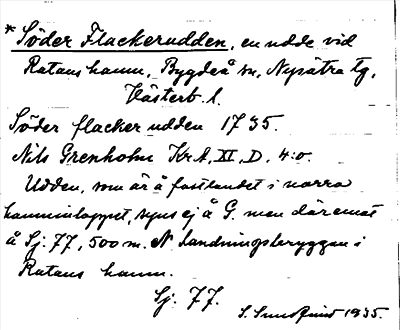 * Söder Flackerudden, en udde vid
Ratans hamn, Bygdeå sn, Nysätra tg,
Västerb. l.
Söder flacker udden 1735.
Nils Grenholm Kr.A. XI. D. 4:o.
Udden, som är å fastlandet i norra
hamninloppet, synes ej å G. men däremot
å Sj. 77, 500 m. N. landningsbryggan i
Ratans hamn.
Sj. 77.
S. Sundqvist 1935.